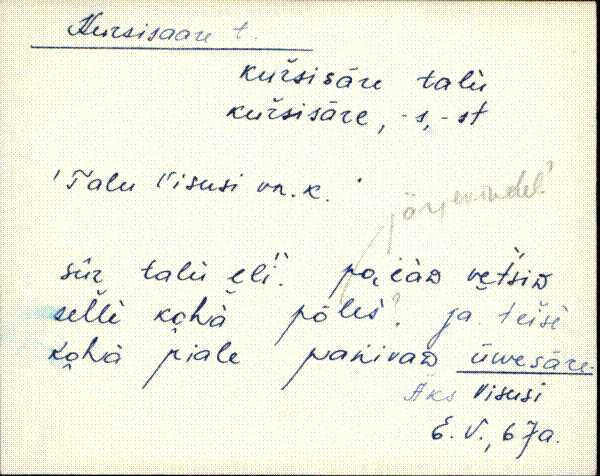 Kursisaare t.
kuřsisāre talù
kuřsisāre, -s, -st
'Talu Visusi vn. k.'
järjevindel?
sūr talù eli". poiàᴅ vètsiᴅ
sellè kohà põles? ja teisè
kohà piale panivaᴅ ūwesāre.
Äks Visusi
E. V., 67a.